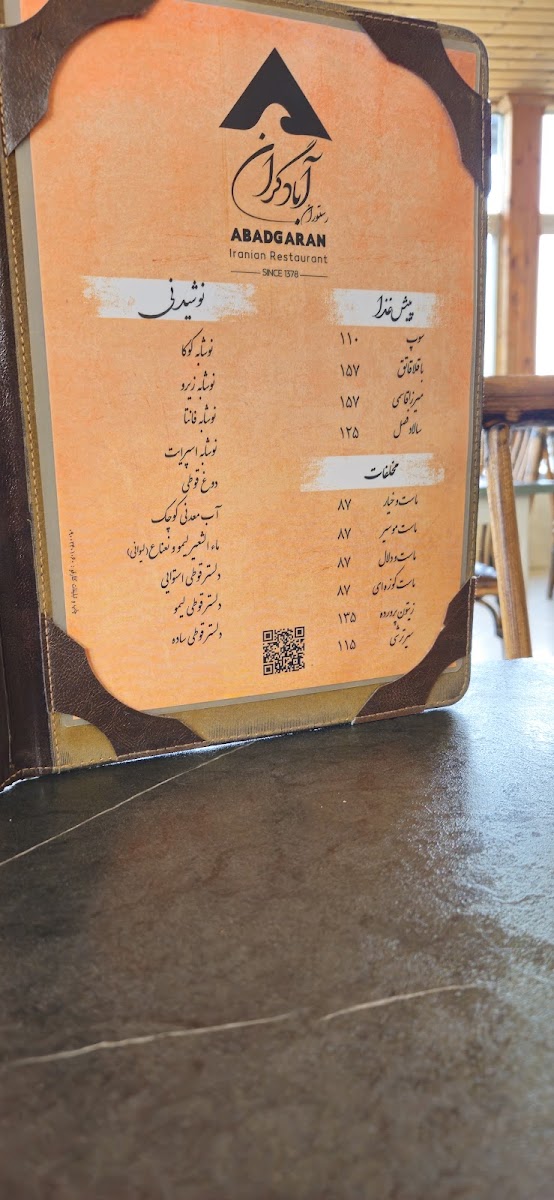 رستوران
آبادگران
ABADGARAN
Iranian Restaurant
SINCE 1378
پیش غذا
سوپ ۱۱۰
باقلاقاتق ۱۵۷
میرزاقاسمی ۱۵۷
سالاد فصل ۱۲۵
مخلفات
ماست و خیار ۸۷
ماست موسیر ۸۷
ماست و دلال ۸۷
ماست کوزه ای ۸۷
زیتون پرورده ۱۳۵
سیرترشی ۱۱۵
نوشیدنی
نوشابه کوکا
نوشابه زیرو
نوشابه فانتا
نوشابه اسپرایت
دوغ قوطی
آب معدنی کوچک
ماء الشعیر لیمو و نعناع (لیوانی)
دلستر قوطی استوایی
دلستر قوطی لیمو
دلستر قوطی ساده